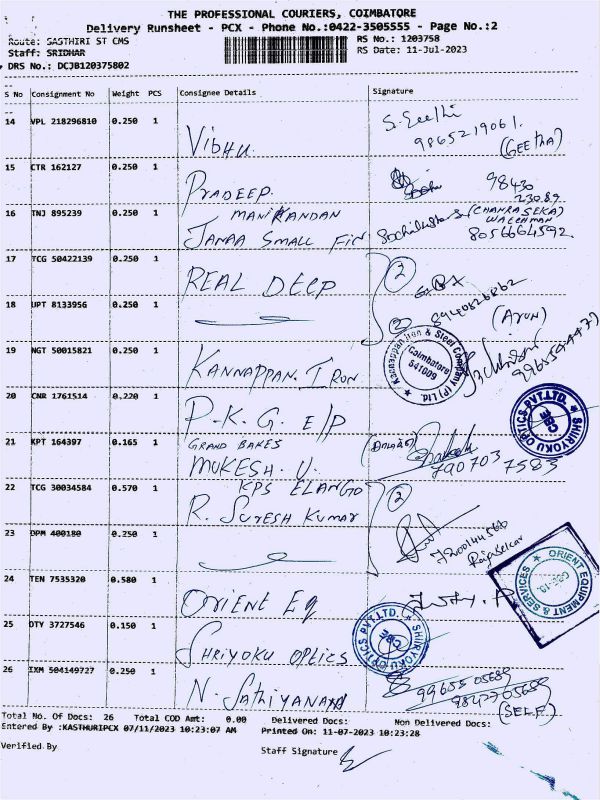 THE PROFESSIONAL COURIERS, COIMBATORE
Delivery Runsheet - PCX - Phone No.:0422-3505555 - Page No.:2
Route: SASTHIRI ST CMS
RS No.: 1203758
Staff: SRIDHAR
RS Date: 11-Jul-2023
DRS No.: DCJB120375802
S No Consignment No Weight PCS Consignee Details Signature
14 VPL 218296810 0.250 1 VIBHU. S. Geethi 9865219061. (GEETHA)
15 CTR 162127 0.250 1 PRADEEP. 98430 23089
16 TNJ 895239 0.250 1 MANIKANDAN (CHANRASEKA) WATCHMAN
JANAA SMALL FIN 8056664592
17 TCG 50422139 0.250 1 REAL DEEP 2
8940826862
18 UPT 8133956 0.250 1 2 (ARUN)
19 NGT 50015821 0.250 1 KANNAPPAN. IRON
Kannappan Iron & Steel Company (P) Ltd. Coimbatore 641009
20 CNR 1761514 0.220 1 P.K.G. E/P
SHRIYOKU OPTICS PVT.LTD. CBE
21 KPT 164397 0.165 1 GRAND BAKES
MUKESH. U. 790703 7583
22 TCG 30034584 0.570 1 KPS ELANGO 2
R. SURESH KUMAR
23 DPM 400180 0.250 1 7200144566
Rajasekar
24 TEN 7535320 0.580 1 ORIENT EQ
ORIENT EQUIPMENT & SERVICES
25 OTY 3727546 0.150 1 SHRIYOKU OPTICS
SHRIYOKU OPTICS PVT.LTD. CBE
26 IXM 504149727 0.250 1 N. SATHIYANA 9965505689
(SELF)
Total No. Of Docs: 26 Total COD Amt: 0.00 Delivered Docs: Non Delivered Docs:
Entered By :KASTHURIPCX 07/11/2023 10:23:07 AM Printed On: 11-07-2023 10:23:28
Verified By Staff Signature